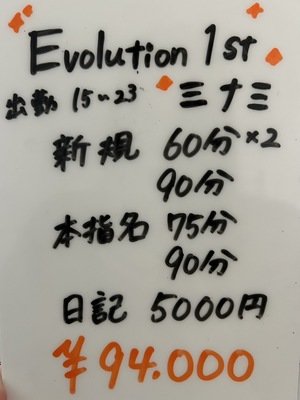 Evolution 1st
出勤 15~23 ミナミ
新規 60分×2
90分
本指名 75分
90分
日記 5000円
¥94.000